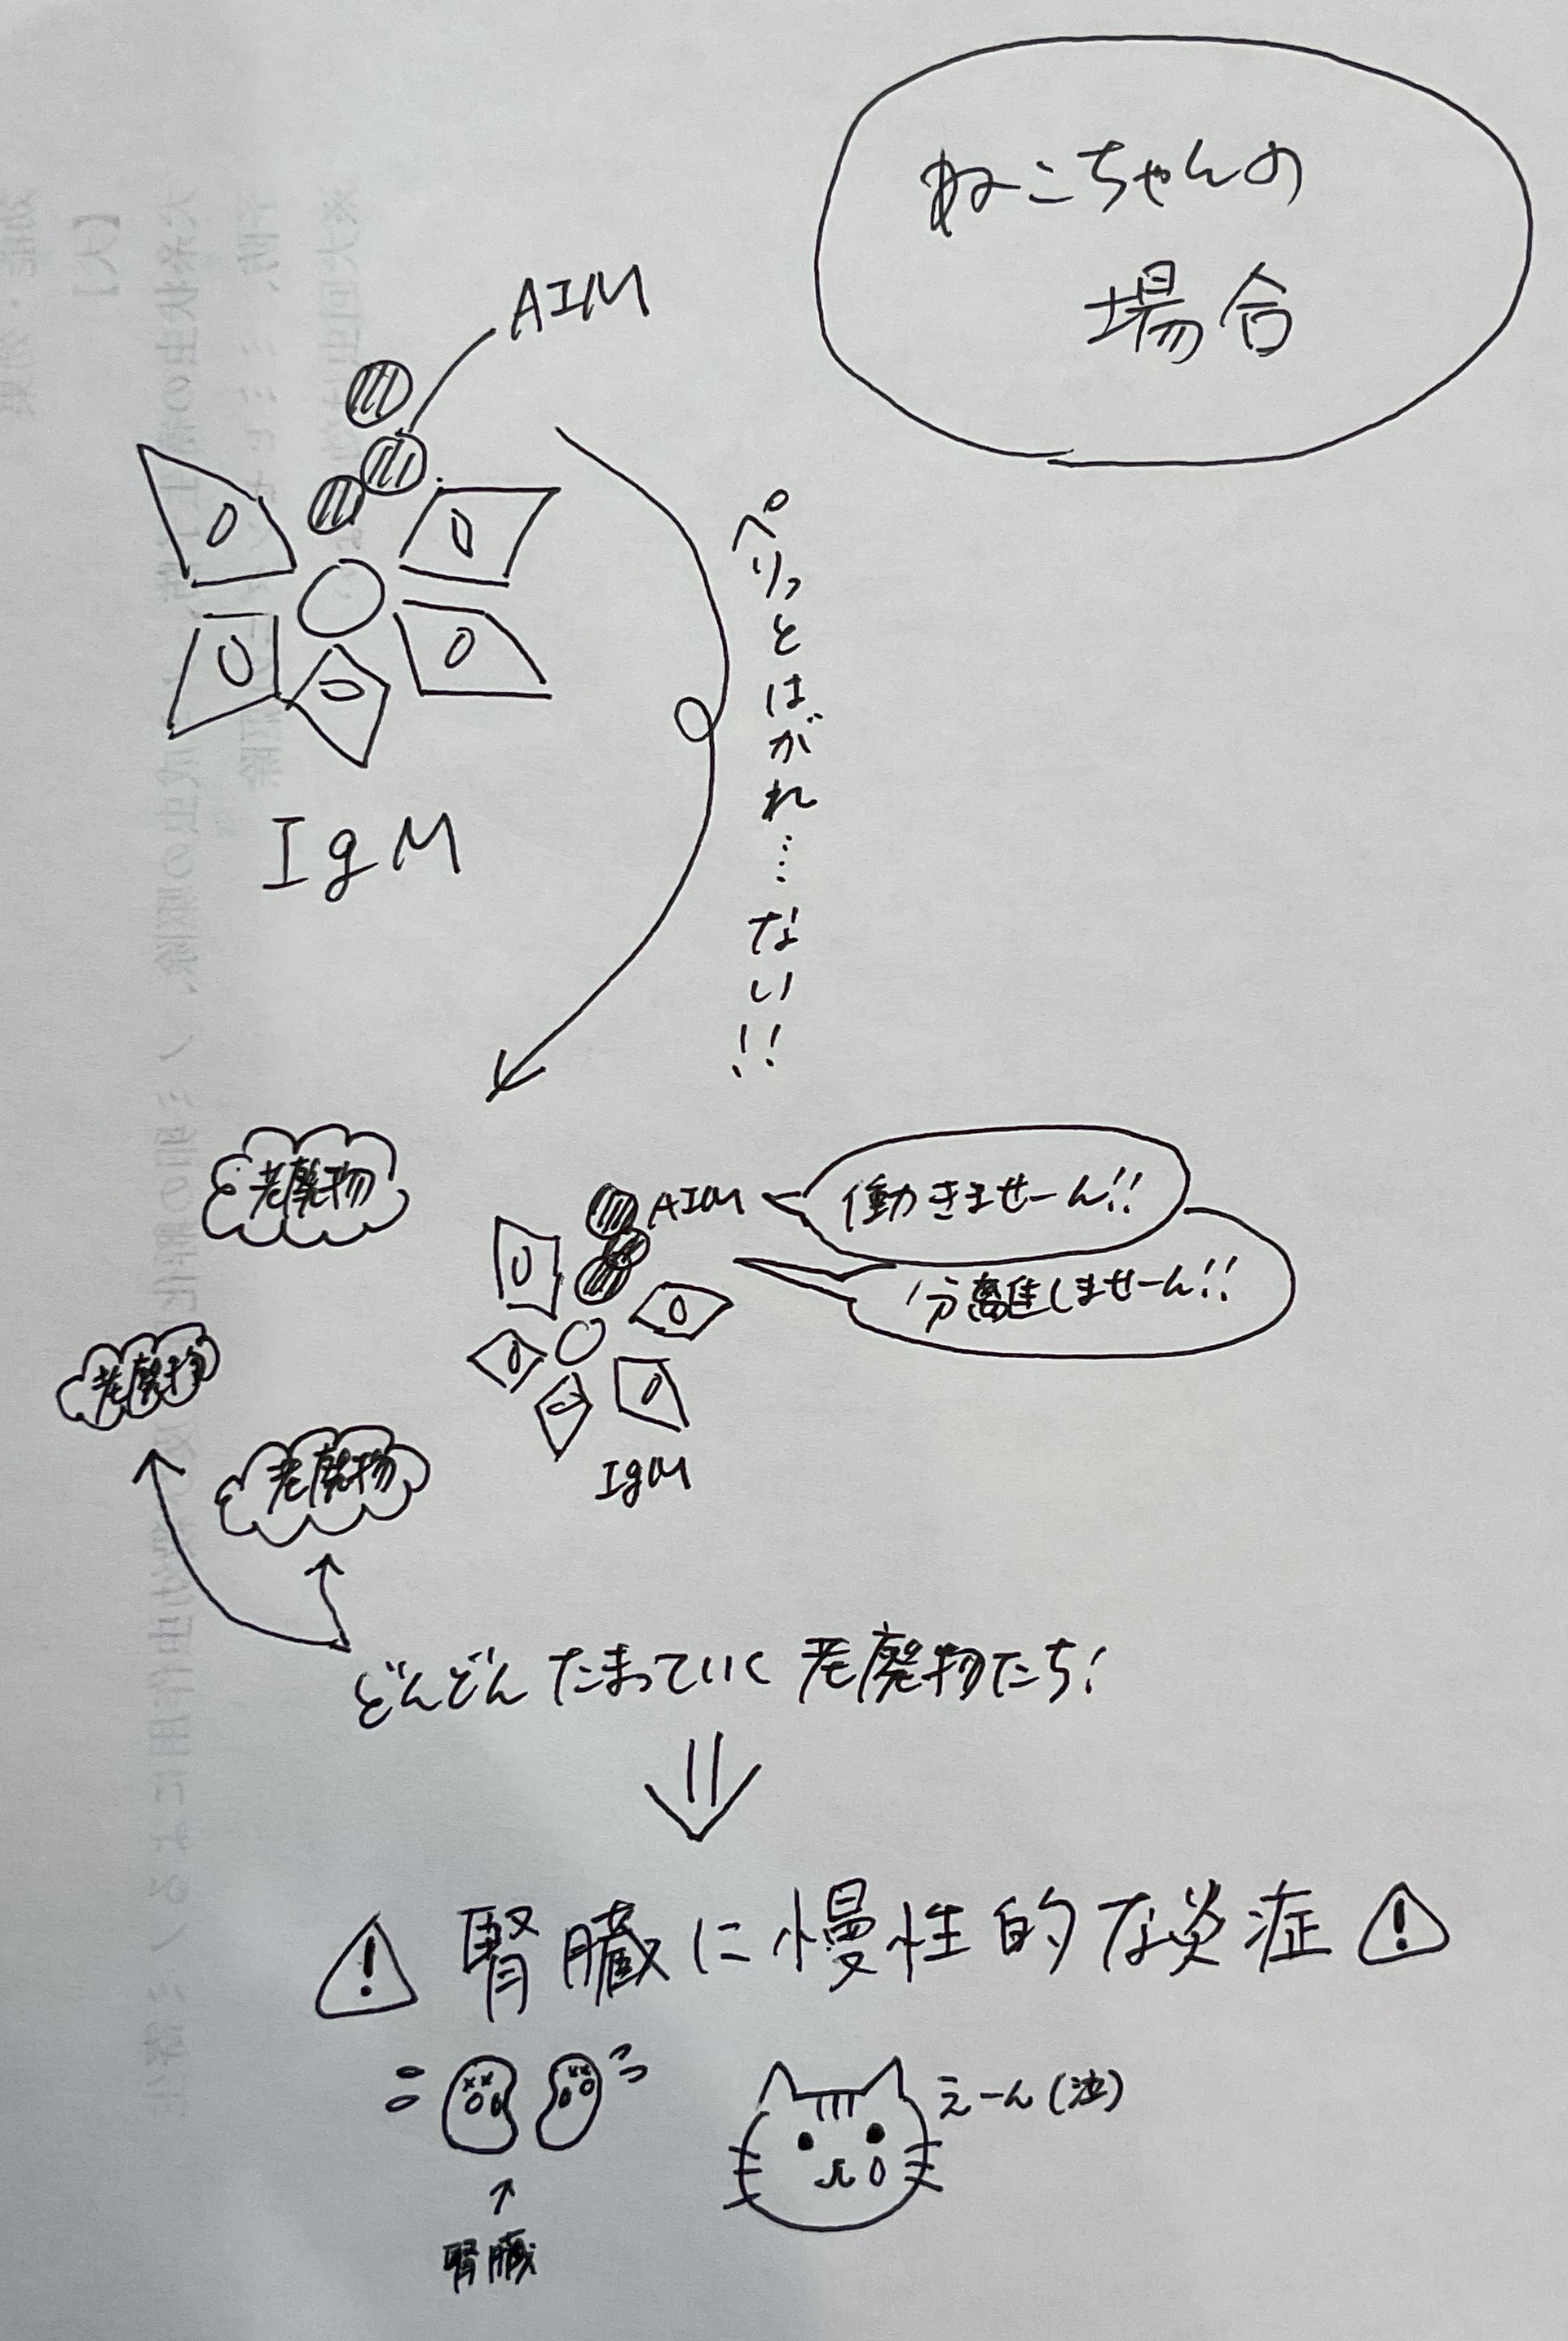 ねこちゃんの
場合
AIM
IgM
ぺりっとはがれ…ない!!
老廃物
AIM
働きませーん!!
分離しませーん!!
老廃物
老廃物
IgM
どんどんたまっていく老廃物たち!
腎臓に慢性的な炎症
えーん(泣)
腎臓